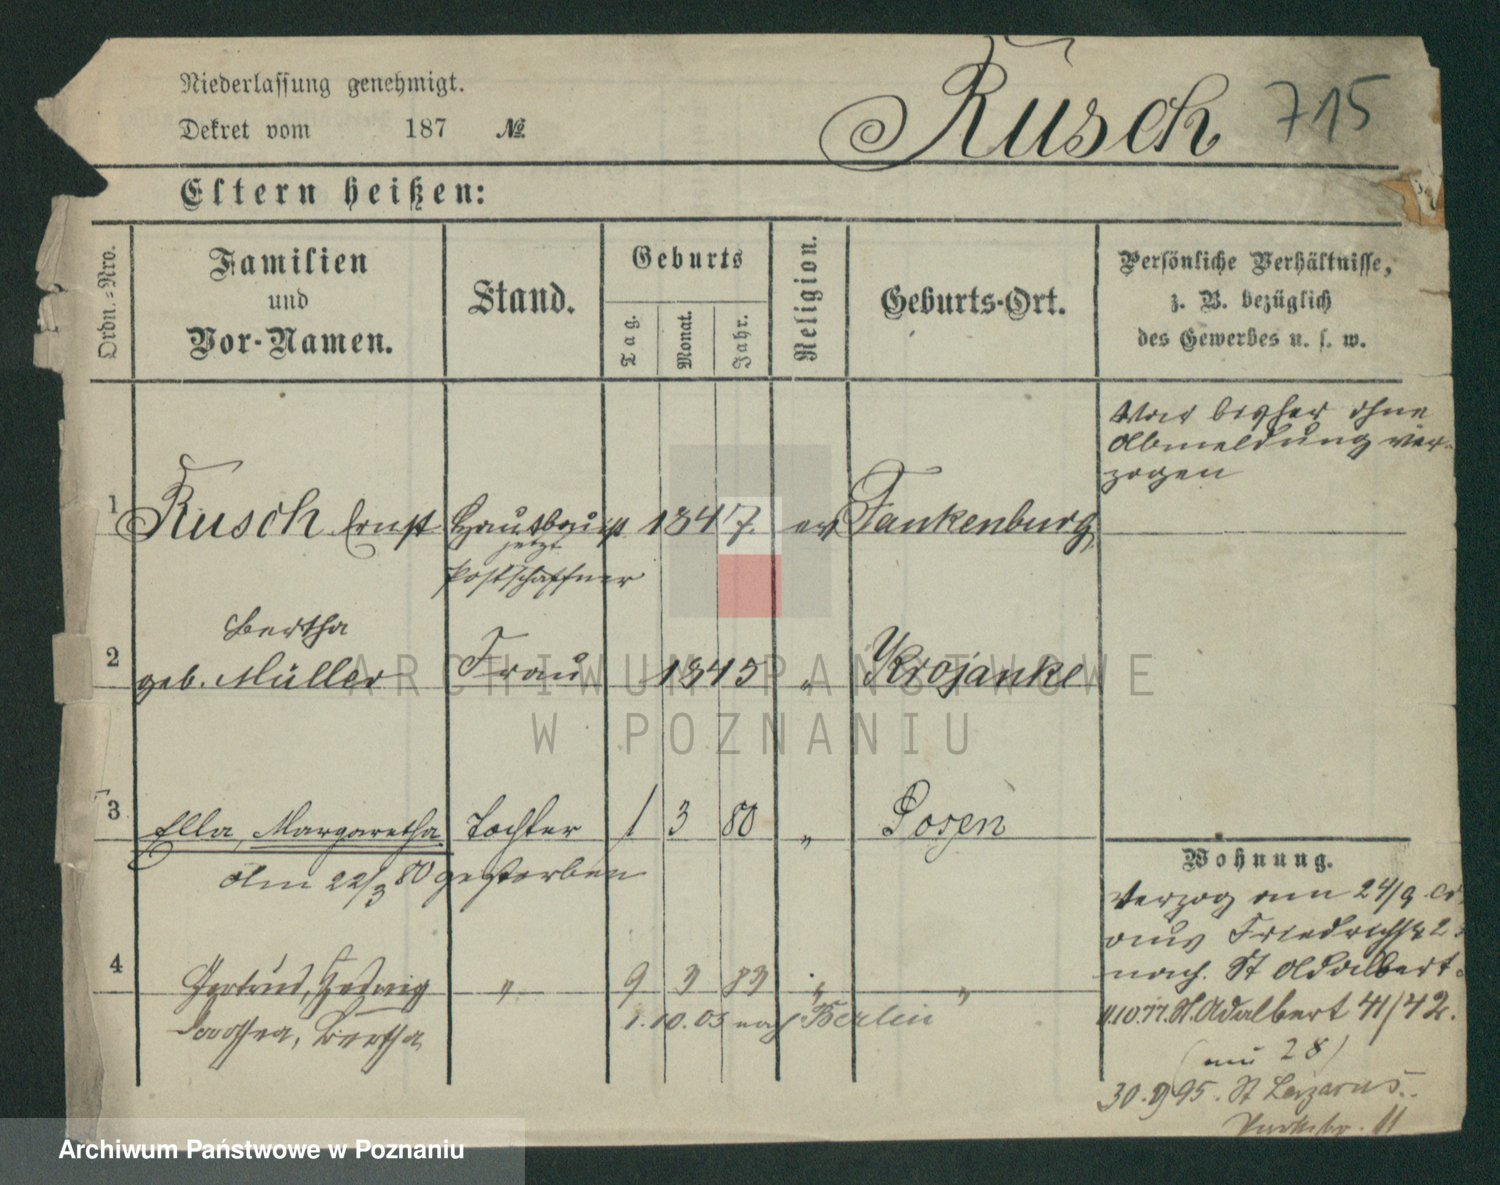 Niederlassung genehmigt.
Dekret vom 187 №
Rusch 715
Eltern heißen:
Ordn.=Nro.
Familien
und
Vor-Namen.
Stand.
Geburts
Tag.
Monat.
Jahr.
Religion.
Geburts-Ort.
Persönliche Verhältnisse,
z. B. bezüglich
des Gewerbes u. s. w.
War bisher ohne
Abmeldung ver-
zogen
1 Rusch Ernst 1847. ev Fankenburg
jetzt
Postschaffner
Bertha
2 geb. Müller Frau 1845 " Krojanke
3 Ella, Margaretha Tochter 1 3 80 " Posen
Am 22/3 80 gestorben
4 Gertrud, Hedwig " 9 3 83 " "
Dorothea, Bertha
1.10.03 nach Berlin
Wohnung.
Verzog am 24/9
aus Friedrichstr 2
nach St Adalbert
11.10.77. St. Adalbert 41/42.
(nu 28)
30.9 95. St Lazarus
11
ARCHIWUM PAŃSTWOWE
W POZNANIU
Archiwum Państwowe w Poznaniu